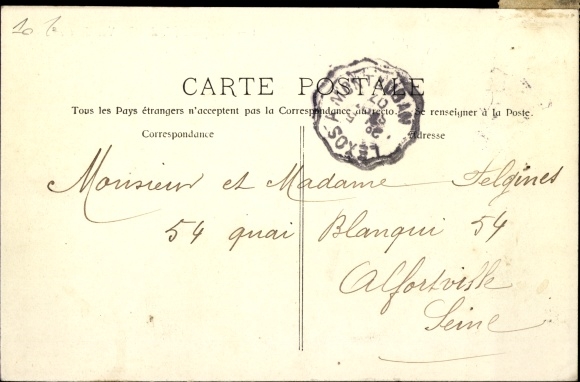 CARTE POSTALE
Tous les Pays étrangers n'acceptent pas la Correspondance au recto. Se renseigner à la Poste.
Correspondance
Adresse
LEXOS A MONTAUBAN
Monsieur et Madame Felgines
54 quai Blanqui 54
Alfortville
Seine